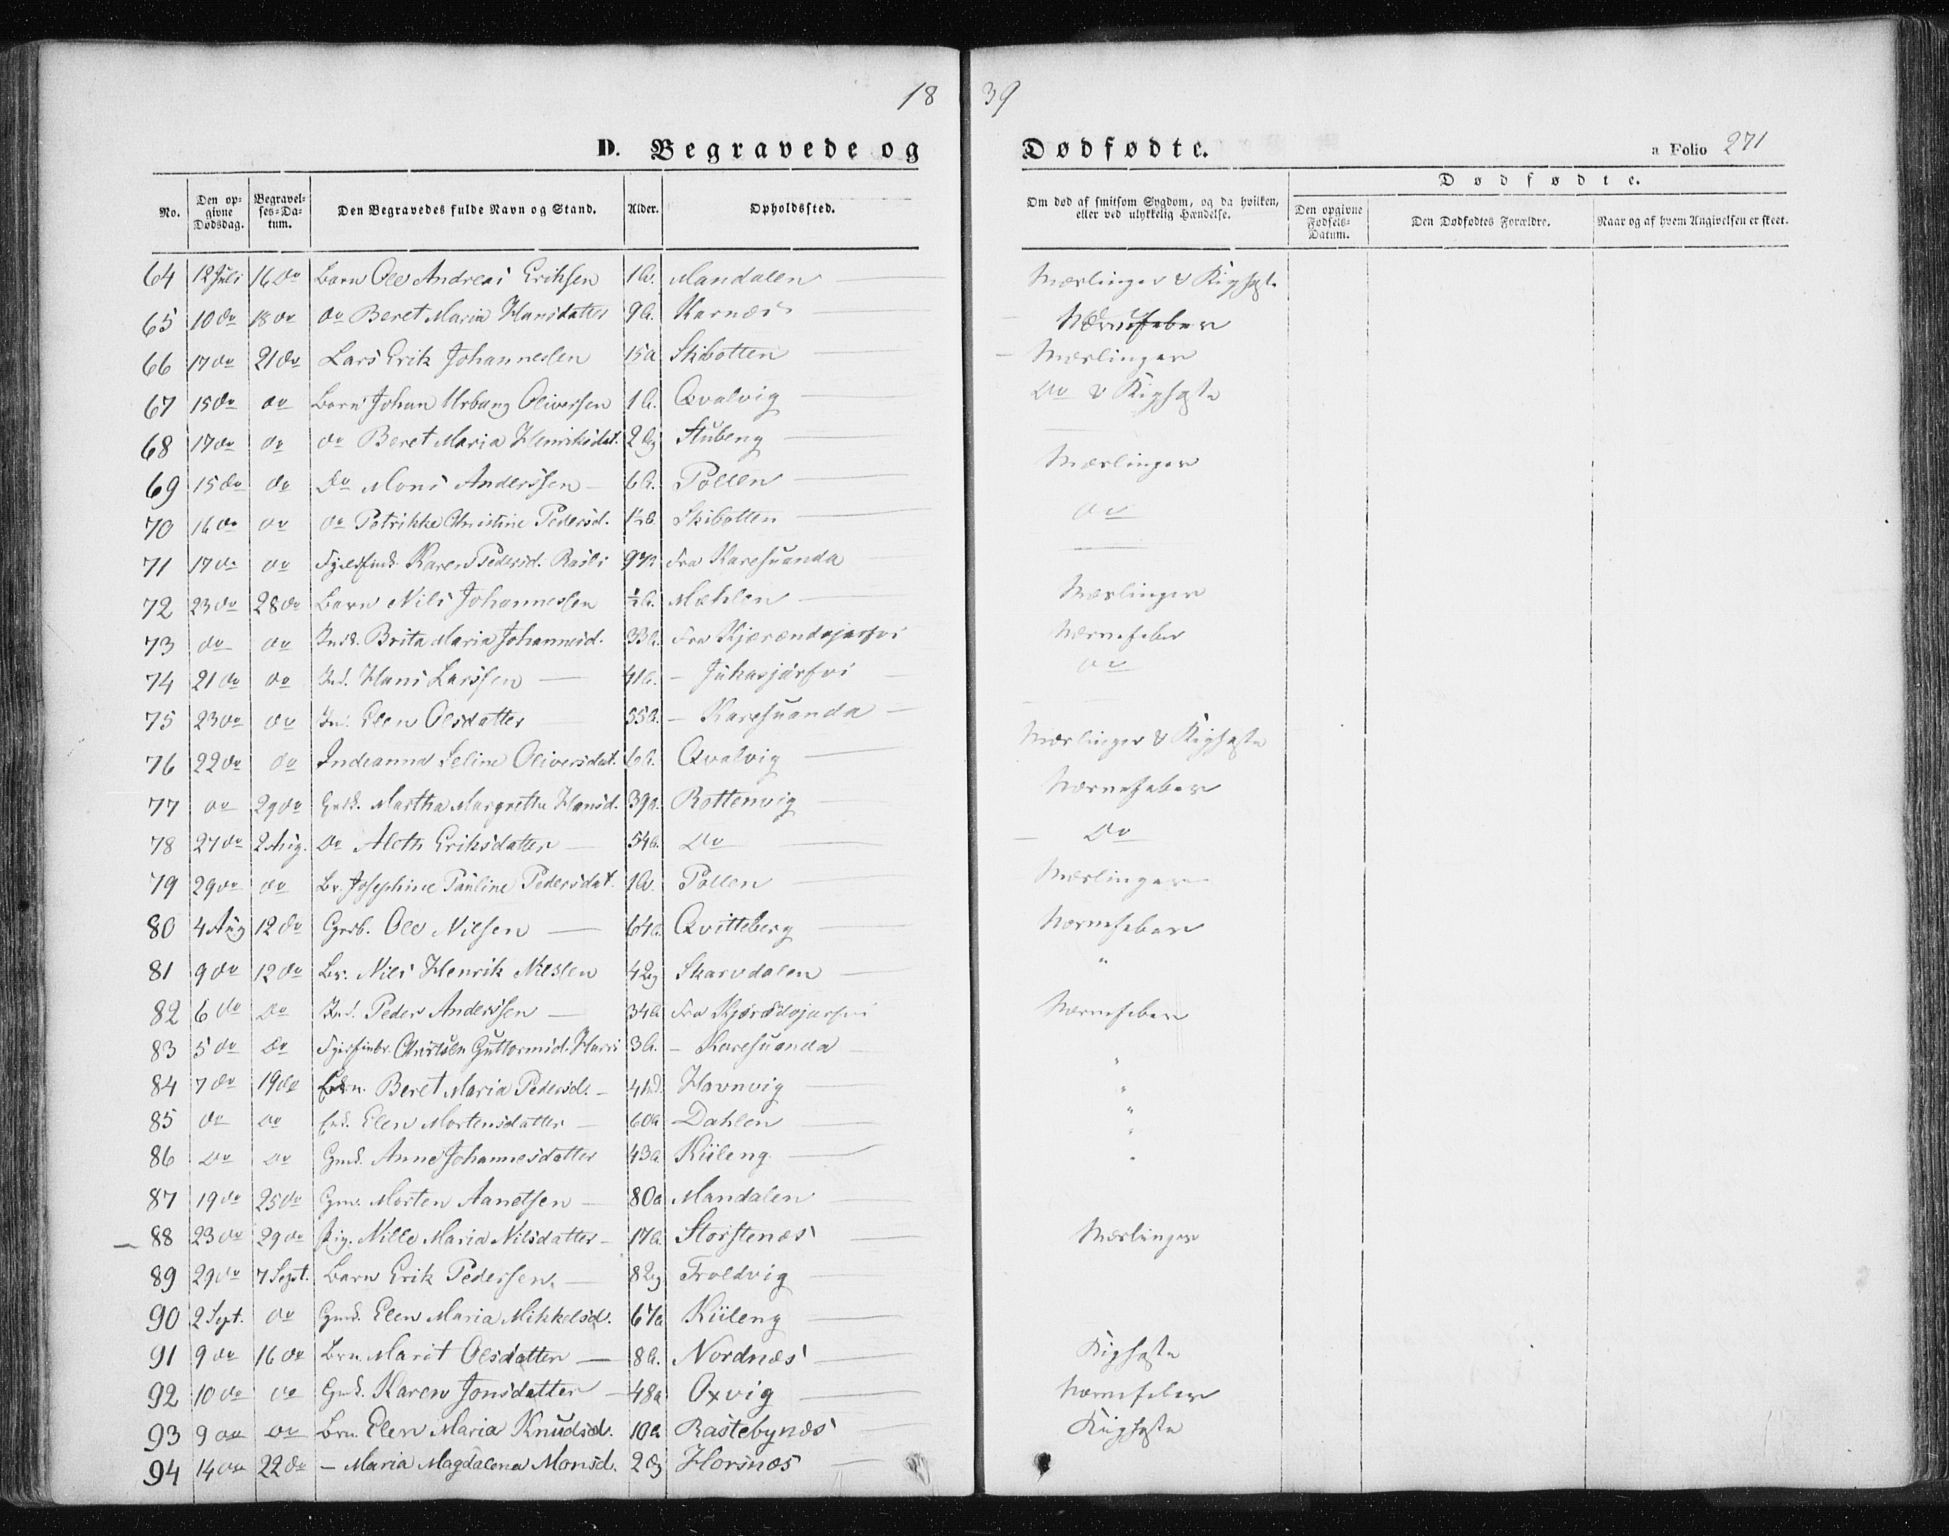 18 39
D. Begravede og Dødfødte.
a Folio 271
No. Den opgivne Dødsdag. Begravelses-Datum. Den Begravedes fulde Navn og Stand. Alder. Opholdssted. Om død af smitsom Sygdom, og da hvilken, eller ved ulykkelig Hændelse. Dødfødte.
Den opgivne Fødsels-Datum. Den Dødfødtes Forældre. Naar og af hvem Angivelsen er skeet.
64 12 Juli 16 do Barn Ole Andreas Eriksen 1 a. Mandalen Mæslinger & Kighoste
65 10 do 18 do do Beret Maria Hansdatter 9 a. Karnæs
66 17 do 21 do Lars Erik Johannessen 15 a Skibotten Mæslinger
67 15 do do Barn Johan Urbang Oliversen 1 a. Qvalvig do & Kighoste
68 17 do do do Beret Maria Henriksdat. 2 Stubeng
69 15 do do do Mons Anderssen 6 a. Pollen Mæslinger
70 16 do do do Petrikke Christine Pedersd. 1½ a. Skibotten do
71 17 do do Karen Pedersd. Rasti 97 a Fra Karesuanda
72 23 do 28 do Barn Nils Johannessen ½ a. Mæhlen Mæslinger
73 do do Brita Maria Johannesd. 33 a. Fra Nervefeber
74 21 do do Ind. Hans Larssen 41 a. - Jukasjärfvi do
75 23 do do Elen Olsdatter 55 a. - Karesuanda
76 22 do do Indianna Seline Oliversdat. 6 a. Qvalvig Mæslinger & Kighoste
77 do 29 do Martha Margrethe Hansd. 39 a. Rottenvig Nervefeber
78 27 do 2 Aug. do Aleth Eriksdatter 54 a. do do
79 29 do do Br. Josephine Pauline Pedersdat. 1 a. Pollen Mæslinger
80 4 Aug 12 do Ole Nilsen 64 a. Qvitteberg Nervefeber
81 9 do 12 do Br. Nils Henrik Nilsen 4 Skarvdalen "
82 6 do do Ind. Peder Anderssen 34 a Fra Nervefeber
83 5 do do Guttormsd. 3 a. - Karesuanda "
84 7 do 19 do Beret Maria Pedersd. Havnvig "
85 do do Elen Mortensdatter 60 a Dahlen "
86 do do Gmd. Anne Johannesdatter 43 a Kiileng "
87 19 do 25 do Gmd. Morten Aanetsen 80 a Mandalen
88 23 do 29 do Pig. Nille Maria Nilsdatter 17 a. Storstenæs Mæslinger
89 29 do 7 Sept. Barn Erik Pedersen 8 Troldvig
90 2 Sept. do Gmd. Elen Maria Mikkelsd. 67 a Kiileng
91 9 do 16 do Brn. Marit Olsdatter 8 a. Nordnæs Kighoste
92 10 do do Gmd. Karen Jonsdatter 48 a Oxvig Nervefeber
93 9 do do Brn. Elen Maria Knudsd. 10 a Rastebynæs Kighoste
94 14 do 22 do - Maria Magdalena Monsd. 2 Horsnæs